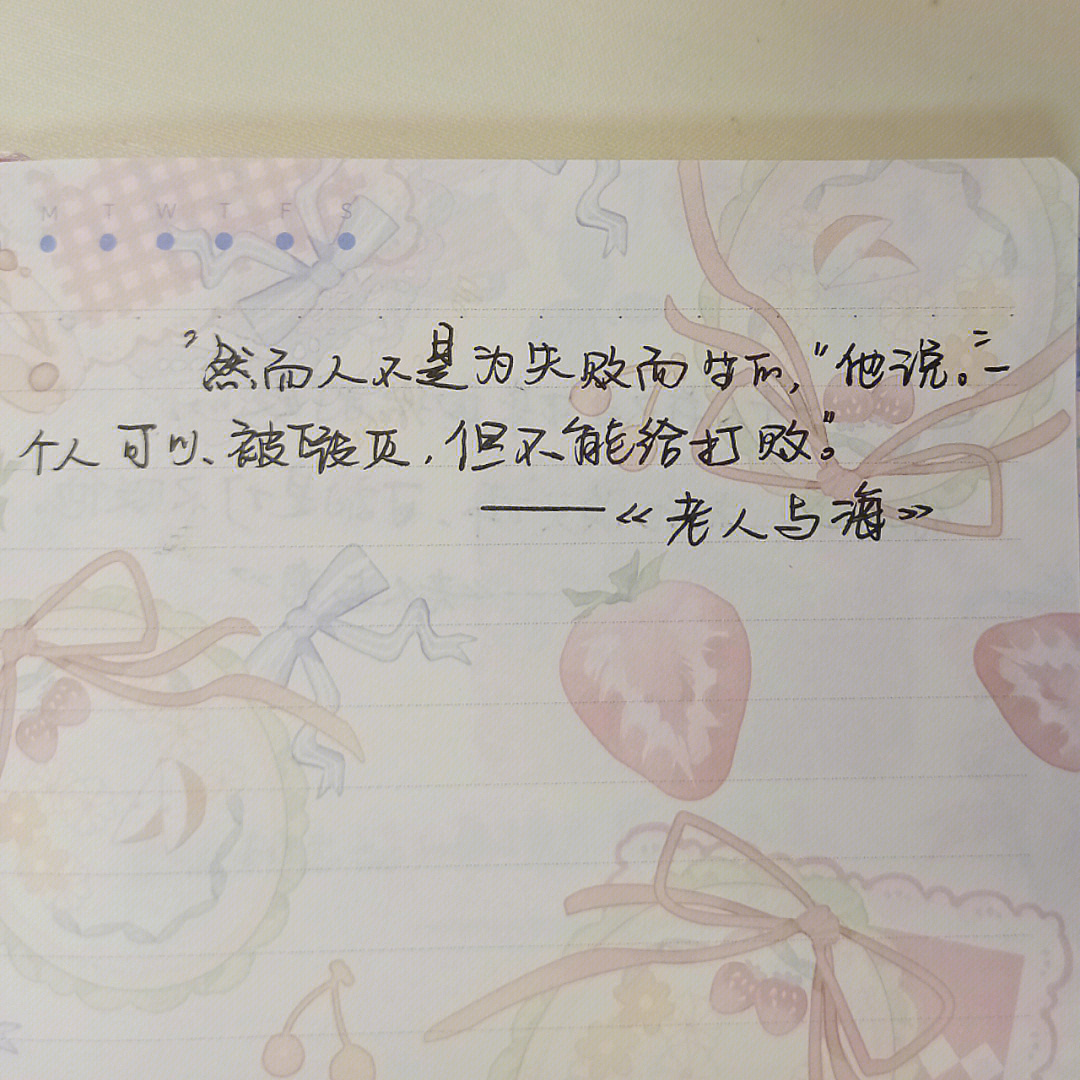 M T W T F S
"然而人不是为失败而生的,"他说。"一
个人可以被毁灭,但不能给打败。"
——《老人与海》